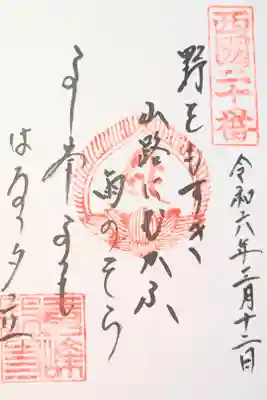 西國二十番
令和六年三月十二日
野をもすぎ
山路にむかふ
雨のそら
よし峯よりも
はるゝ夕立